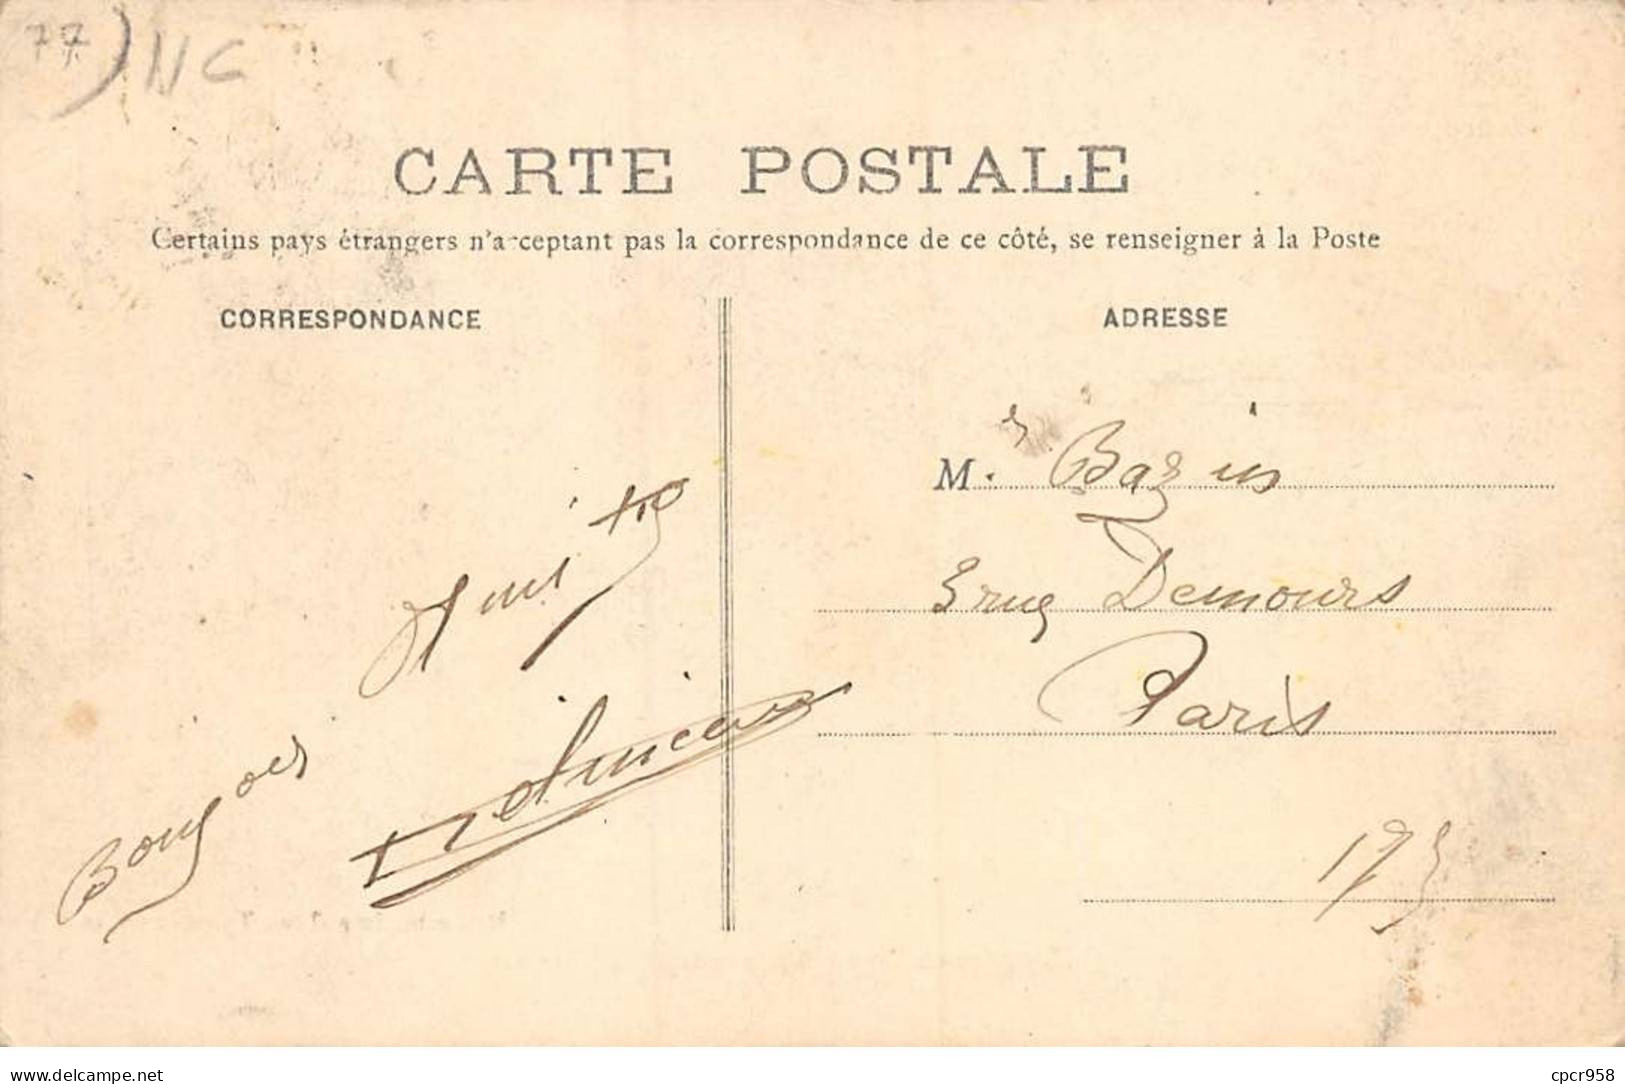 77) NC
CARTE POSTALE
Certains pays étrangers n'acceptant pas la correspondance de ce côté, se renseigner à la Poste
CORRESPONDANCE
ADRESSE
M. Bazin
3 rue Demours
Paris
173
Amitié
Bonjour
www.delcampe.net
cpcr958